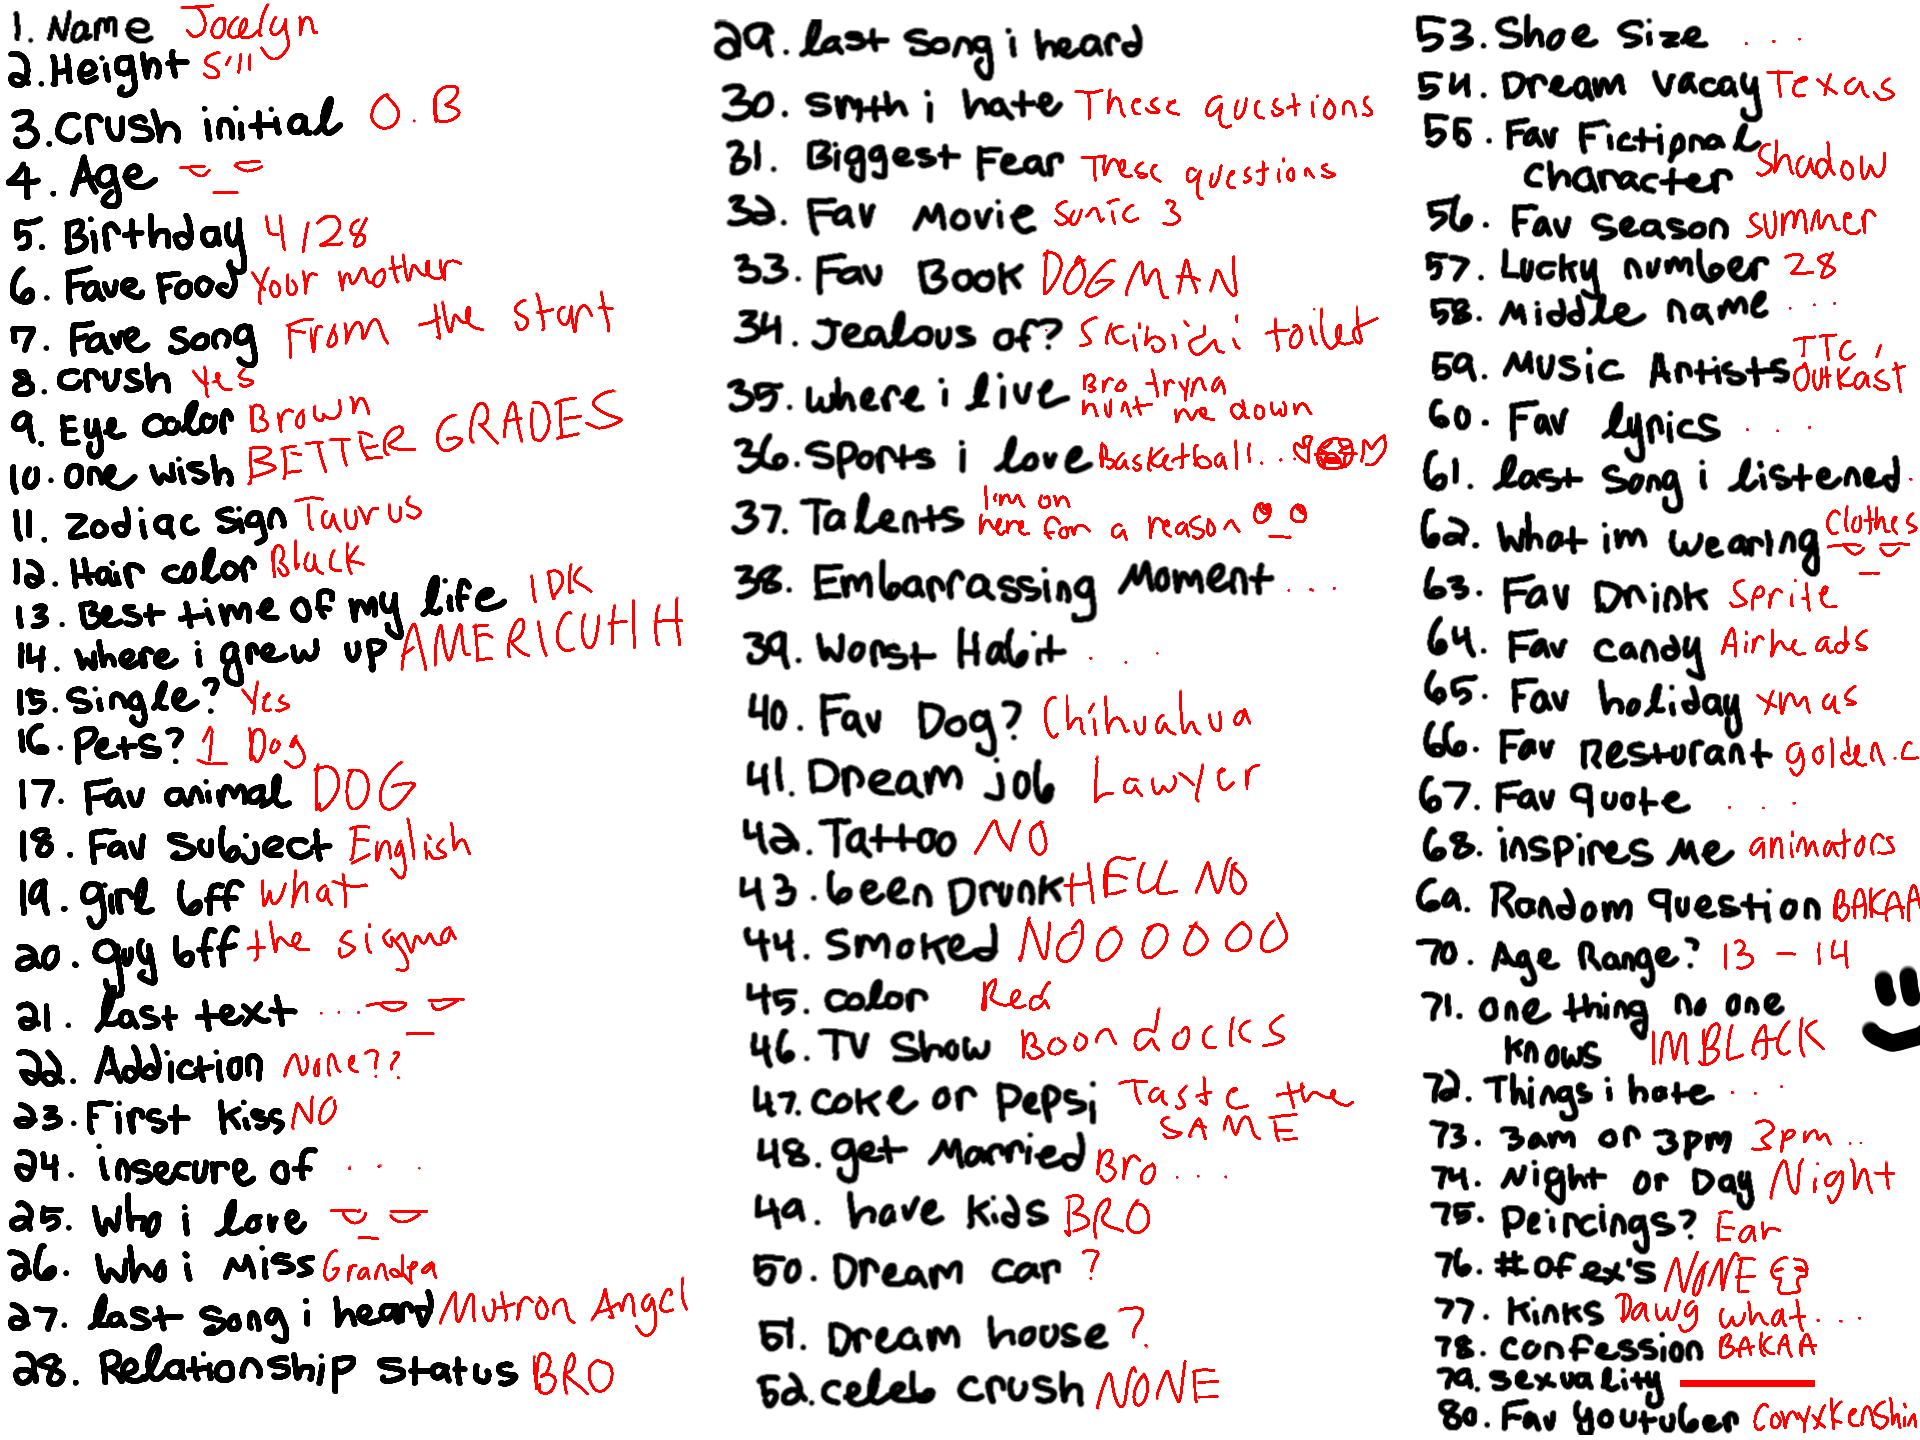 1. Name Jocelyn
2. Height 5'11
3. Crush initial O.B
4. Age
5. Birthday 4/28
6. Fave Food Your mother
7. Fave song From the start
8. crush Yes
9. Eye color Brown
10. one wish BETTER GRADES
11. zodiac sign Taurus
12. Hair color Black
13. Best time of my life IDK
14. where i grew up AMERICUHH
15. Single? Yes
16. Pets? 1 Dog
17. Fav animal DOG
18. Fav subject English
19. girl bff what
20. guy bff the sigma
21. last text ...
22. Addiction None??
23. First kiss NO
24. insecure of ...
25. Who i love
26. Who i miss Grandpa
27. last song i heard Mutron Angel
28. Relationship status BRO
29. last song i heard
30. smth i hate These questions
31. Biggest Fear These questions
32. Fav Movie Sonic 3
33. Fav Book DOGMAN
34. Jealous of? Skibidi toilet
35. where i live Bro tryna
hunt me down
36. Sports i love Basketball...
37. Talents I'm on
here for a reason
38. Embarrassing Moment ...
39. Worst Habit ...
40. Fav Dog? Chihuahua
41. Dream job Lawyer
42. Tattoo NO
43. been Drunk HELL NO
44. Smoked NOOOOOO
45. color Red
46. TV Show Boondocks
47. coke or Pepsi Taste the
SAME
48. get Married Bro ...
49. have kids BRO
50. Dream car ?
51. Dream house ?
52. celeb crush NONE
53. Shoe Size ...
54. Dream vacay Texas
55. Fav Fictional
Character Shadow
56. Fav season summer
57. Lucky number 28
58. Middle name ...
59. Music Artists TTC,
OutKast
60. Fav lyrics ...
61. last song i listened .
62. What im wearing Clothes
63. Fav Drink Sprite
64. Fav candy Airheads
65. Fav holiday xmas
66. Fav Resturant golden.c
67. Fav quote ...
68. inspires me animators
69. Random question BAKAA
70. Age Range? 13 - 14
71. one thing no one
knows IM BLACK
72. Things i hate ...
73. 3am or 3pm 3pm..
74. Night or Day Night
75. Peircings? Ear
76. # of ex's NONE
77. Kinks Dawg what...
78. confession BAKAA
79. sexuality
80. Fav youtuber CoryxKenshin